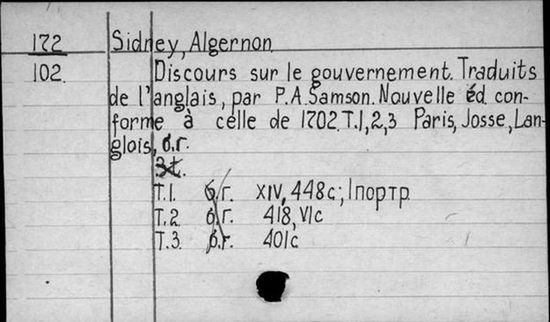 172 Sidney, Algernon
102. Discours sur le gouvernement. Traduits
de l'anglais, par P.A.Samson. Nouvelle éd. con-
forme à celle de 1702. T.1,2,3 Paris, Josse, Lan-
glois, б.г.
3t.
T.1. б/г. XIV, 448с; 1портр.
T.2 б.г. 418, VIс
T.3. б.г. 401с